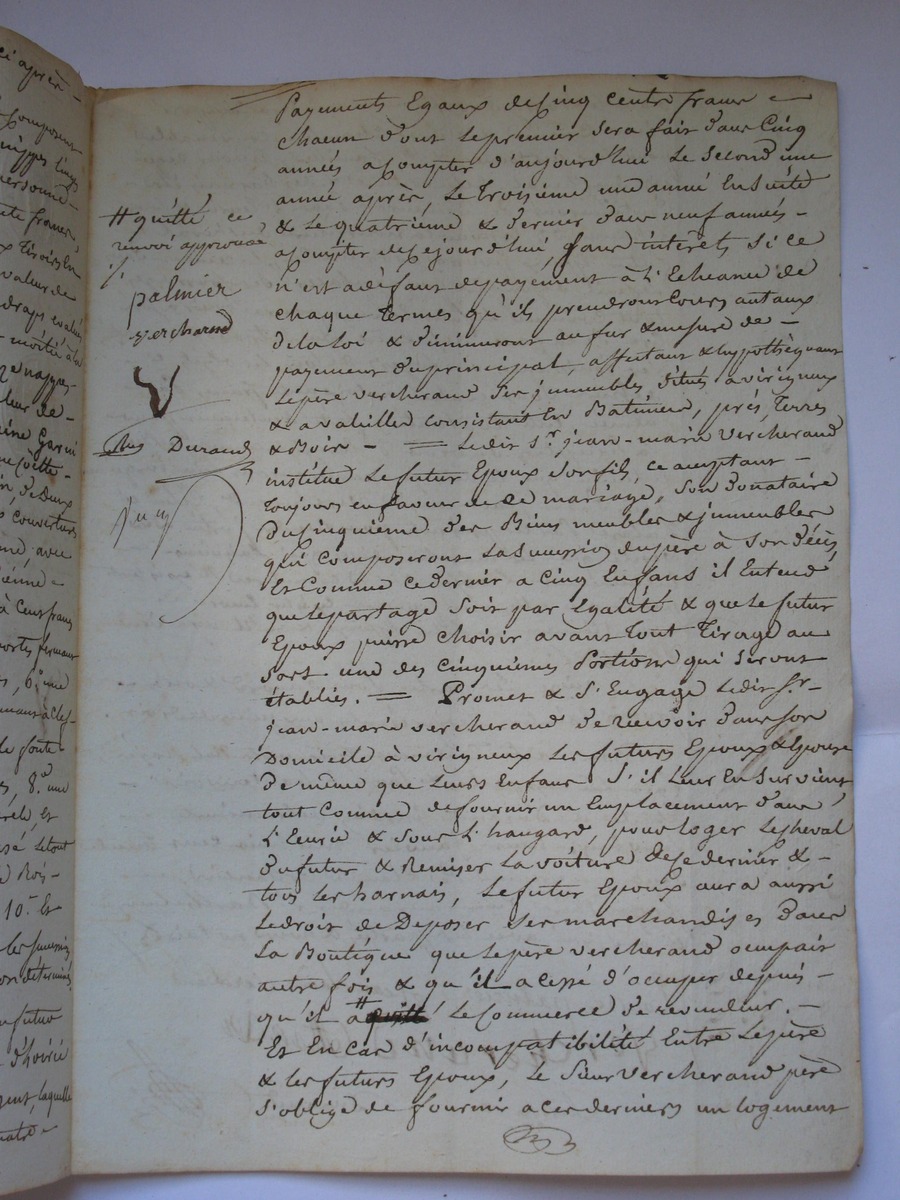 ci après -
Payements Egaux de Cinq Cents francs
chacun dont le premier sera fait dans Cinq
années a Compter d'aujourd'hui le second une
année après, le troisième une année Ensuite
& le quatrième & dernier dans neuf années -
a Compter de Cejourd'hui, sans intérêts, si ce
n'est a défaut de payement à l'Echeance de
chaque termes qu'ils prendront Cours au taux
de la loi & diminueront au fur & mesure de -
payement du principal, affectant & hypothéquant
le père vercherand ses jmmeubles situés a virigneux
& a valeille Consistant En Batiments, prés, terres
& Bois - = ledit Sr. jean-marie vercherand
institue le futur Epoux son fils, ce acceptant -
toujours en faveur de Ce mariage, son Donataire
du Cinquième des Biens meubles & jmmeubles
qui Composeront la Succession du père à son décès,
Et Comme ce dernier a Cinq Enfans il Entend
que le partage soit par Egalité & que le futur
Epoux puisse choisir avant tout tirage au
sort une des cinquièmes Portions qui seront
établies. = Promet & s'Engage ledit Sr.
jean-marie vercherand de recevoir dans son
Domicile à virigneux les futurs Epoux & Epouse
de même que leurs Enfans s'il leur En survient,
tout Comme de fournir un Emplacement dans
l'Ecurie & sous l'haugard, pour loger le cheval
du futur & Remiser la voiture de ce dernier & -
tous les harnais, le futur Epoux aura aussi
le droit de Déposer ses marchandises dans
la Boutique que le père vercherand occupait
autre fois & qu'il a cessé d'occuper depuis -
qu'il a # le Commerce de revendeur. -
Et En Cas d'incompatibilité Entre le père
& les futurs Epoux, le Sieur vercherand père
s'oblige de fournir a ces derniers un logement
# quitté, ce
renvoi approuvé
palmier
vercherand
V
Durand